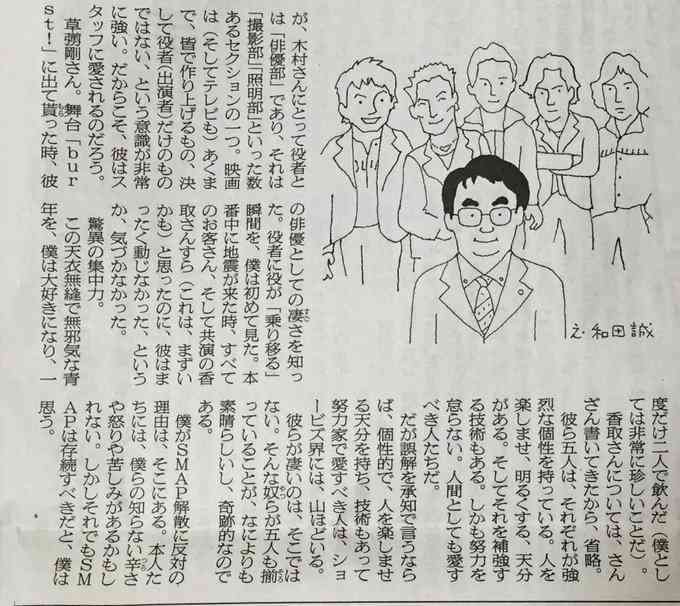 が、木村さんにとって役者と
は「俳優部」であり、それは
「撮影部」「照明部」といった数
あるセクションの一つ。映画
は(そしてテレビも)あくま
で、皆で作り上げるもの、決
して役者(出演者)だけのもの
ではない、という意識が非常
に強い。だからこそ、彼はス
タッフに愛されるのだろう。
草彅剛さん。舞台「bur
st!」に出て貰った時、彼
の俳優としての凄さを知っ
た。役者に役が「乗り移る」
瞬間を、僕は初めて見た。本
番中に地震が来た時、すべて
のお客さん、そして共演の香
取さんすら(これは、まずい
かも)と思ったのに、彼はま
ったく動じなかった、という
か、気づかなかった。
驚異の集中力。
この天衣無縫で無邪気な青
年を、僕は大好きになり、一
度だけ二人で飲んだ(僕とし
ては非常に珍しいことだ)。
香取さんについては、さん
ざん書いてきたから、省略。
彼ら五人は、それぞれが強
烈な個性を持っている。人を
楽しませ、明るくする、天分
がある。そしてそれを補強す
る技術もある。しかも努力を
怠らない。人間としても愛す
べき人たちだ。
だが誤解を承知で言うなら
ば、個性的で、人を楽しませ
る天分を持ち、技術もあって
努力家で愛すべき人は、ショ
ービズ界には、山ほどいる。
彼らが凄いのは、そこでは
ない。そんな奴らが五人も揃
っていることが、なによりも
素晴らしいし、奇跡的なので
ある。
僕がSMAP解散に反対の
理由は、そこにある。本人た
ちには、僕らの知らない辛さ
や怒りや苦しみがあるかもし
れない。しかしそれでもSM
APは存続すべきだと、僕は
思う。
え・和田誠